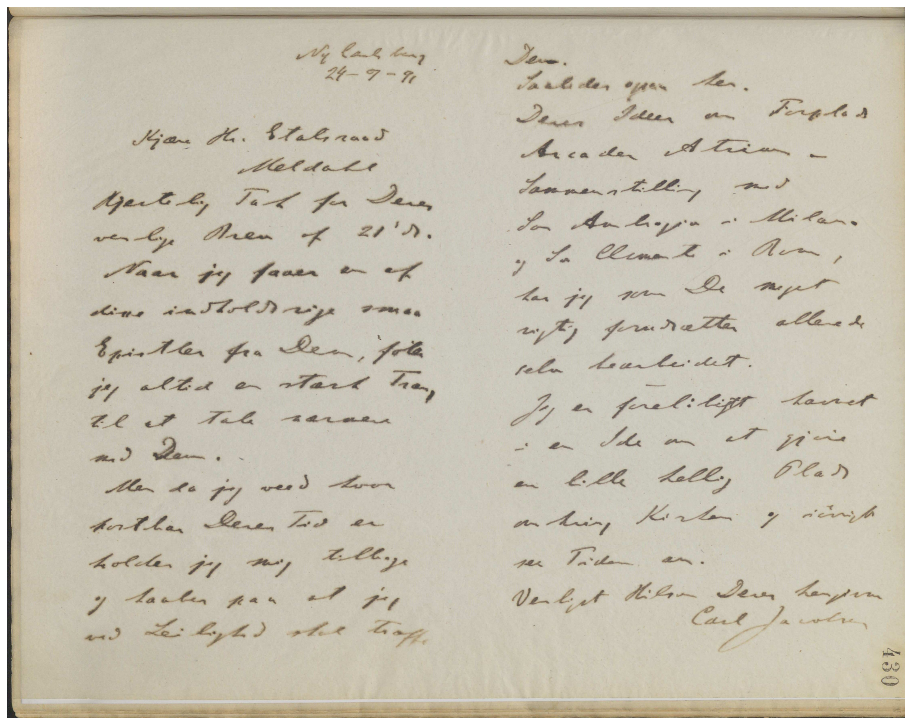 Ny Carlsberg
24-7-91
Kjære Hr. Etatsraad
Meldahl
Hjertelig Tak for Deres
venlige Brev af 21' ds.
Naar jeg faaer en af
disse indholdsrige smaa
Epistler fra Dem, føler
jeg altid en stærk Trang
til at tale nærmere
med Dem.
Men da jeg veed hvor
kostbar Deres Tid er
holder jeg mig tilbage
og haaber paa at jeg
ved Leilighed skal træffe
Dem.
Saaledes ogsaa her.
Deres Ideer om Forplads
Arcader Atrium -
Sammenstilling med
San Ambrogio i Milano
og San Clemente i Rom,
har jeg som De meget
rigtig forudsætter allerede
selv bearbeidet.
Jeg er foreløbigt havnet
i en Ide om at gjøre
en lille hellig Plads
omkring Kirken og iøvrigt
see Tiden an.
Venligst Hilsen Deres hengivne
Carl Jacobsen
430